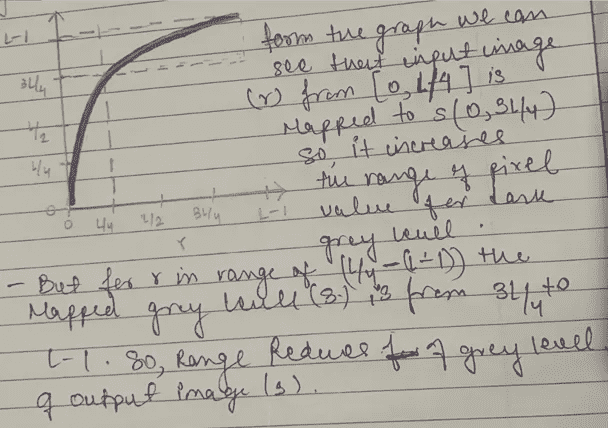 L-1
3L/4
L/2
L/4
0
0 L/4 L/2 3L/4 L-1
r
form the graph we can
see that input image
(r) from [0, L/4] is
Mapped to s(0, 3L/4)
so, it increases
the range of pixel
value for dark
grey level.
- But for r in range of (L/4 - (L-1)) the
Mapped grey level (s) is from 3L/4 to
L-1. So, Range Reduces of grey level
of output image (s).